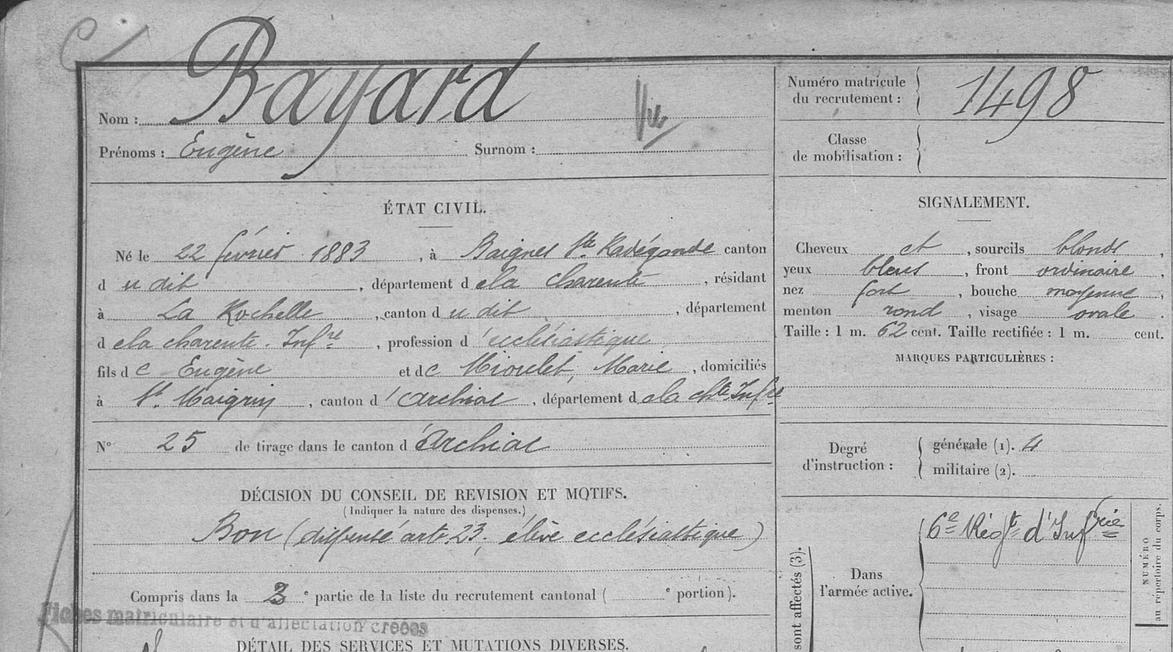 Bayard
Nom :
Prénoms : Eugène Surnom :
ÉTAT CIVIL.
Né le 22 février 1883, à Baignes Ste Radégonde canton
d u dit, département d e la Charente, résidant
à La Rochelle, canton d u dit, département
d e la charente. Infre, profession d'ecclésiastique
fils d e Eugène et de Marie, domiciliés
à St Maigrin, canton d'Archiac, département d e la chte Infre
N° 25 de tirage dans le canton d'Archiac
DÉCISION DU CONSEIL DE REVISION ET MOTIFS.
(Indiquer la nature des dispenses.)
Bon (dispensé art. 23; élève ecclésiastique)
Compris dans la e partie de la liste du recrutement cantonal ( e portion).
Fiches matriculaire et d'affectation créées
DÉTAIL DES SERVICES ET MUTATIONS DIVERSES.
Numéro matricule
du recrutement : 1498
Classe
de mobilisation :
SIGNALEMENT.
Cheveux et, sourcils blonds,
yeux bleus, front ordinaire
nez fort, bouche moyenne
menton rond, visage ovale
Taille : 1 m. 62 cent. Taille rectifiée : 1 m. cent.
MARQUES PARTICULIÈRES :
Degré
d'instruction :
générale (1). 4
militaire (2).
sont affectés (3).
Dans
l'armée active.
6e Régt d'Infrie
NUMÉRO
au répertoire du corps.